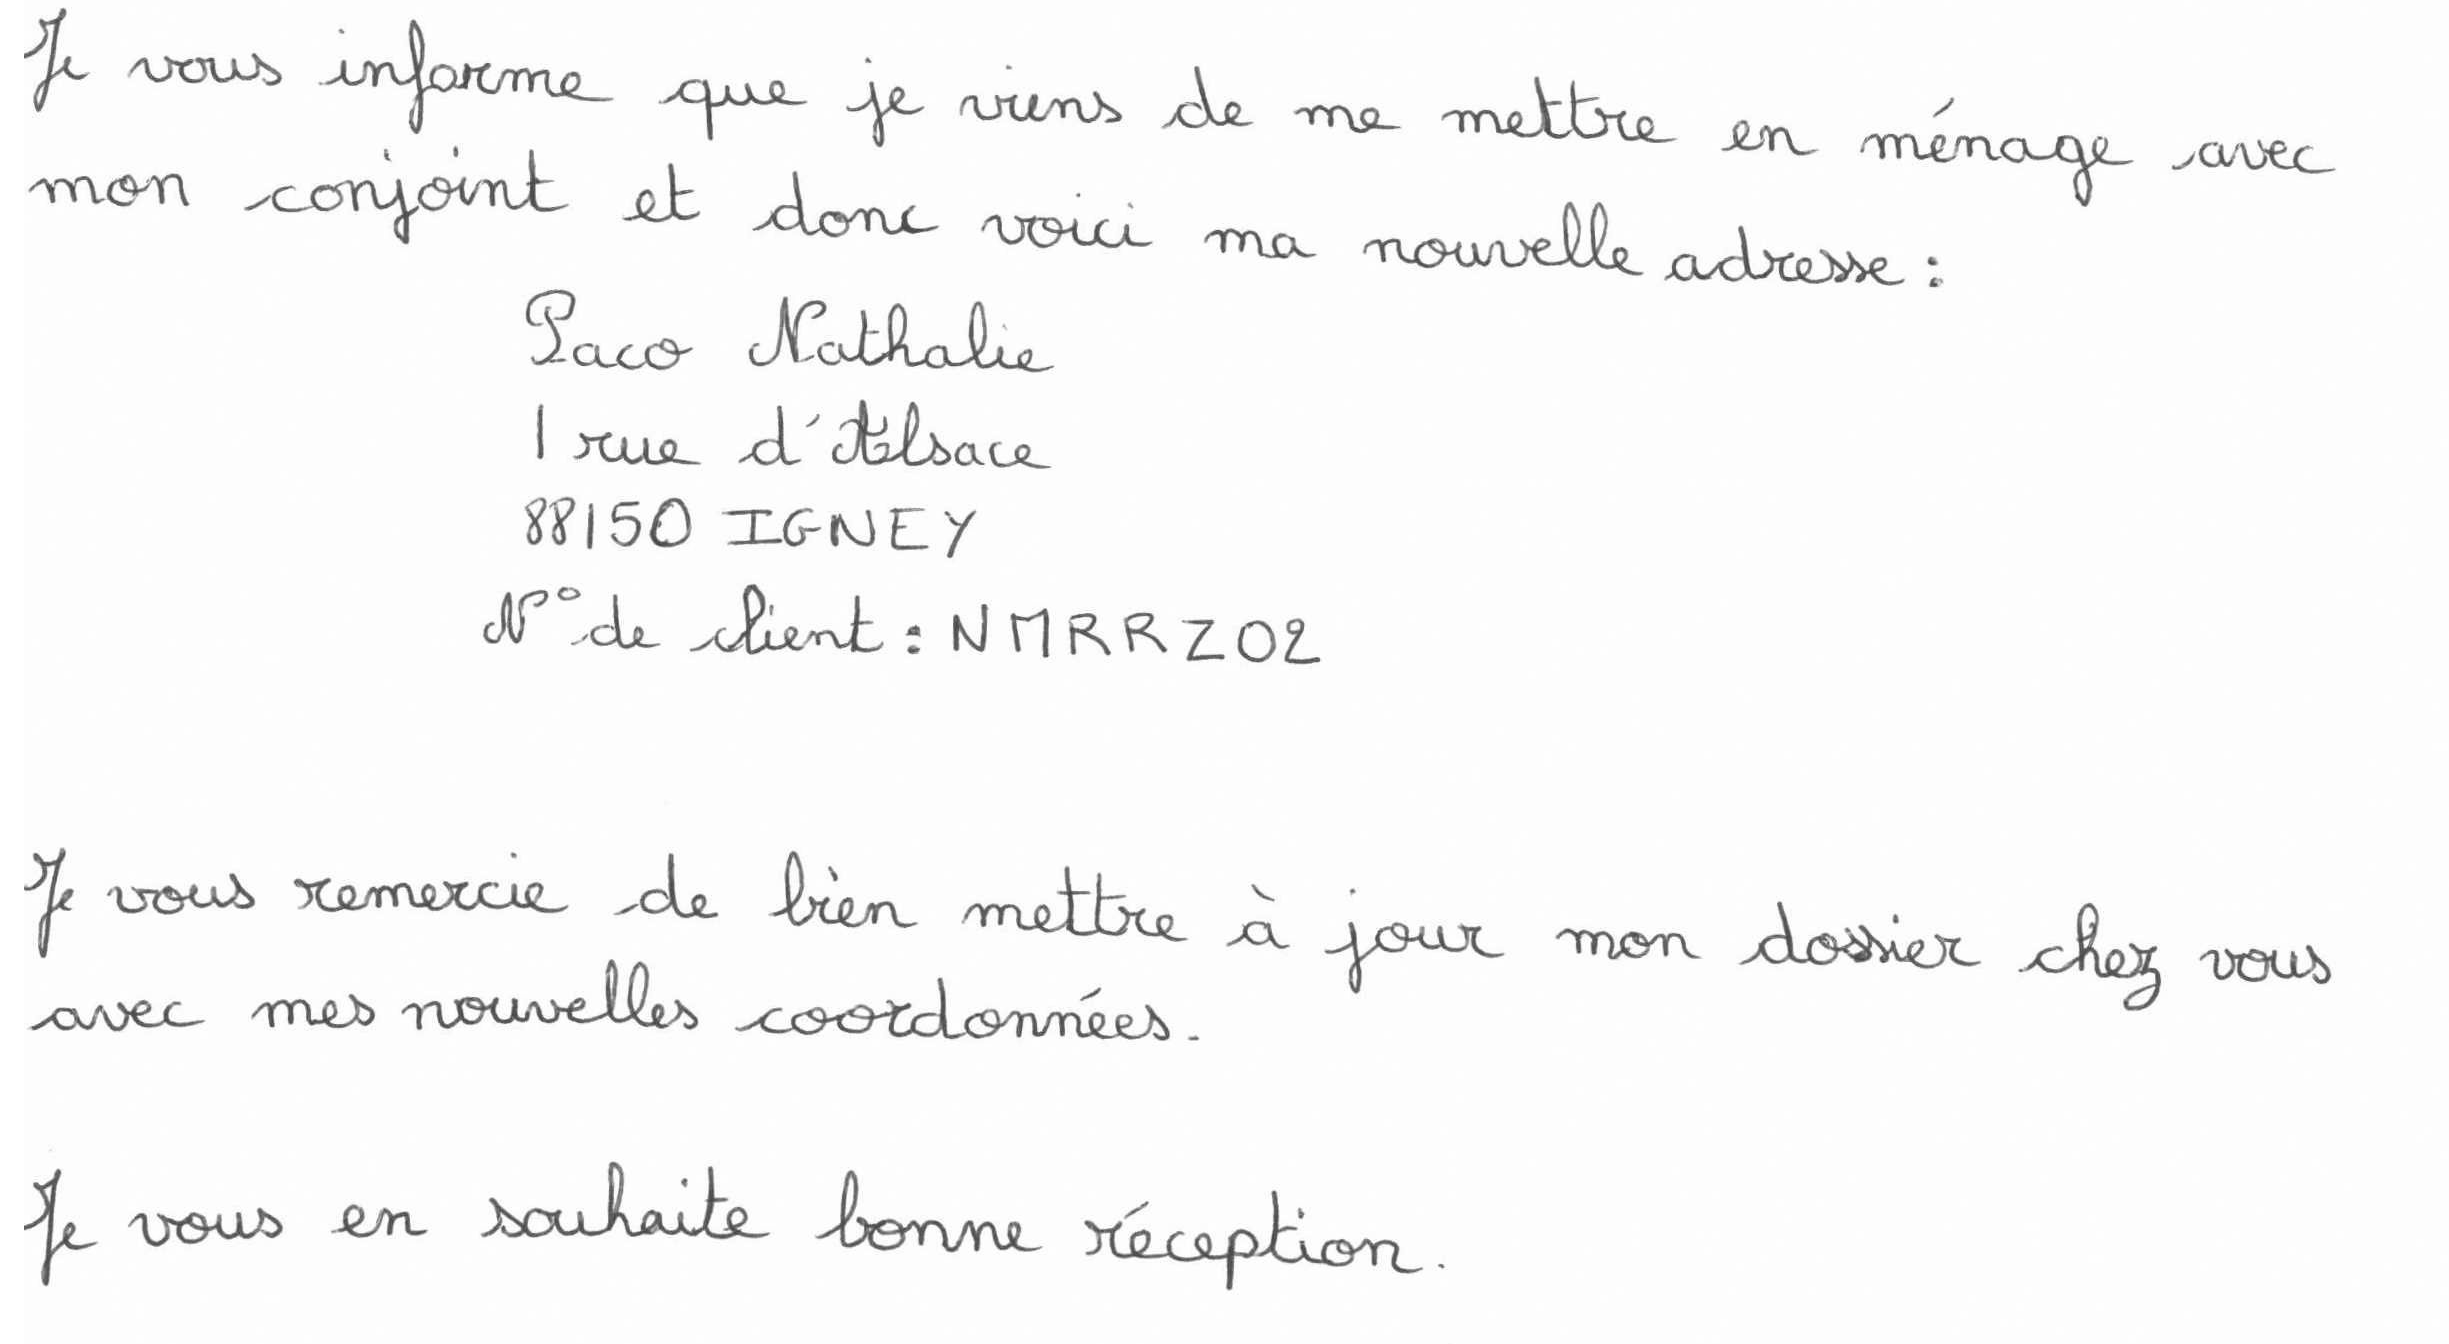 Je vous informe que je viens de me mettre en ménage avec
mon conjoint et donc voici ma nouvelle adresse :
Paco Nathalie
1 rue d'Alsace
88150 IGNEY
N° de client : NMRRZ02
Je vous remercie de bien mettre à jour mon dossier chez vous
avec mes nouvelles coordonnées.
Je vous en souhaite bonne réception.